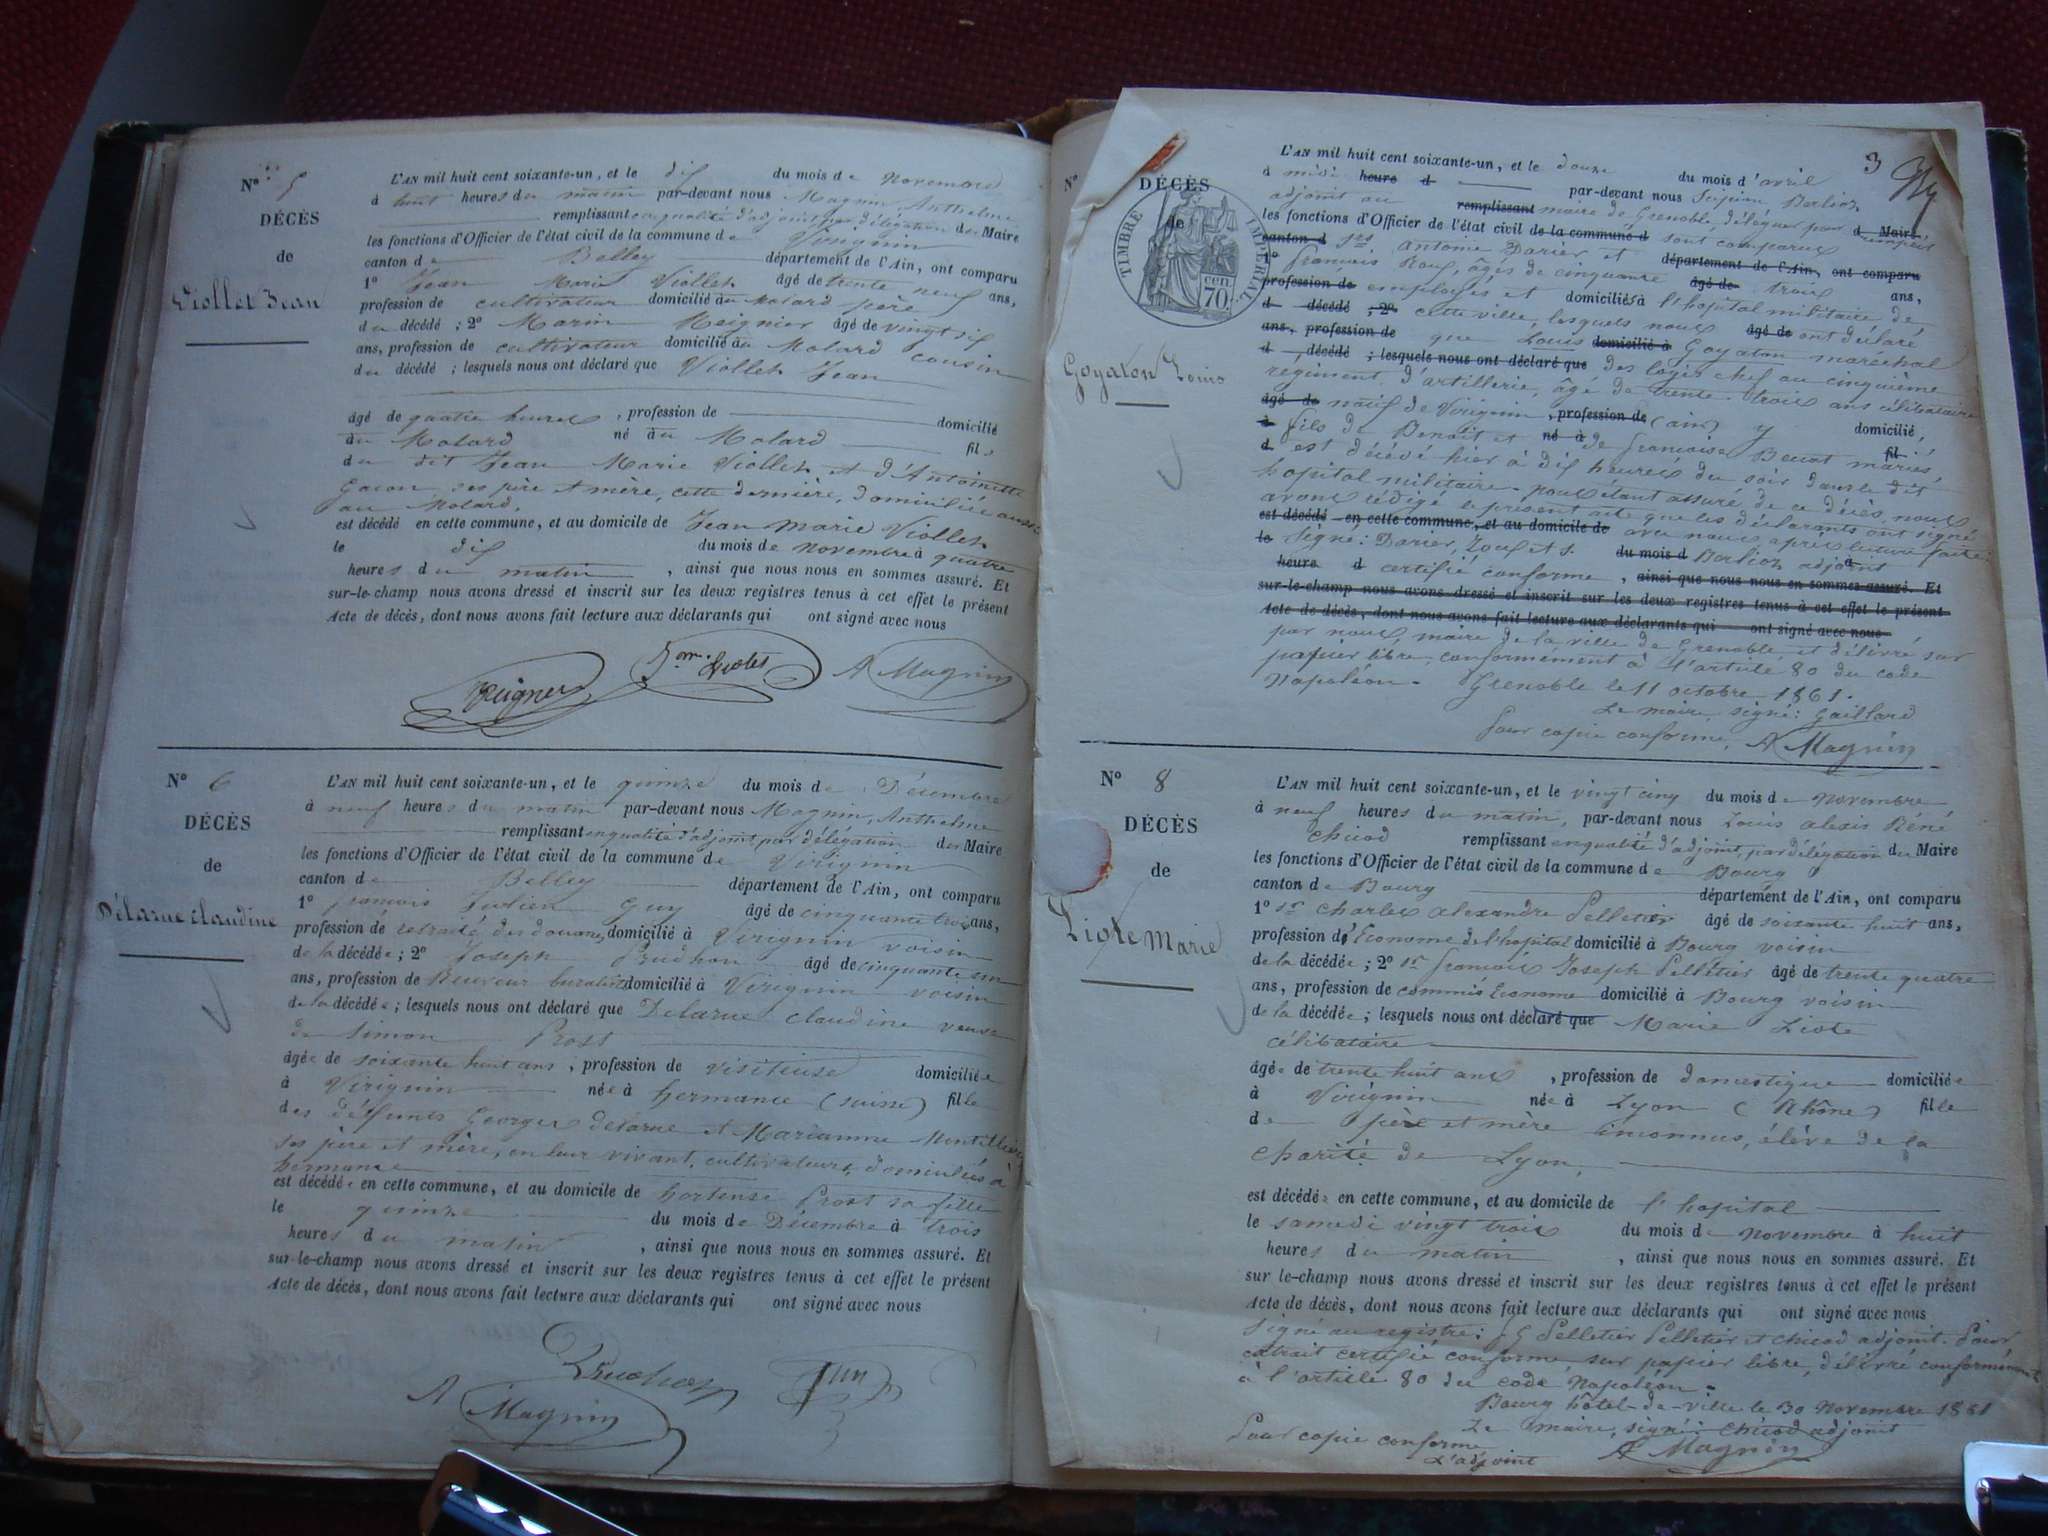 N° 5
DÉCÈS
de
Viollet Jean
L'AN mil huit cent soixante-un, et le dix du mois de Novembre
à huit heures du matin par-devant nous Magnin, Anthelme
remplissant en qualité d'adjoint par délégation du Maire
les fonctions d'Officier de l'état civil de la commune de Virignin
canton de Belley département de l'Ain, ont comparu
1° Jean Marie Viollet âgé de trente neuf ans,
profession de cultivateur domicilié au Molard père
du décédé ; 2° Marin Meignier âgé de vingt six
ans, profession de cultivateur domicilié au Molard cousin
du décédé ; lesquels nous ont déclaré que Viollet Jean
âgé de quatre heures, profession de domicilié
au Molard né au Molard fils
du dit Jean Marie Viollet et d'Antoinette
Gacon, ses père et mère, cette dernière, domiciliée aussi
au Molard.
est décédé en cette commune, et au domicile de Jean Marie Viollet
le dix du mois de novembre à quatre
heures du matin, ainsi que nous nous en sommes assuré. Et
sur-le-champ nous avons dressé et inscrit sur les deux registres tenus à cet effet le présent
Acte de décès, dont nous avons fait lecture aux déclarants qui ont signé avec nous
A Magnin
N° 6
DÉCÈS
de
Délarue claudine
L'AN mil huit cent soixante-un, et le quinze du mois de Décembre
à neuf heures du matin par-devant nous Magnin, Anthelme
remplissant en qualité d'adjoint par délégation du Maire
les fonctions d'Officier de l'état civil de la commune de Virignin
canton de Belley département de l'Ain, ont comparu
1° françois Julien Guy âgé de cinquante trois ans,
profession de retraité des douanes, domicilié à Virignin voisin
de la décédée ; 2° Joseph Prudhon âgé de cinquante un
ans, profession de Receveur buraliste domicilié à Virignin voisin
de la décédée ; lesquels nous ont déclaré que Delarue claudine veuve
de Simon Prost
âgée de soixante huit ans, profession de visiteuse domiciliée
à Virignin née à hermance (suisse) fille
des défunts Georges delarue et Marianne
ses père et mère, en leur vivant, cultivateurs, domiciliés à
hermance
est décédée en cette commune, et au domicile de hortense Prost sa fille
le quinze du mois de Décembre à trois
heures du matin, ainsi que nous nous en sommes assuré. Et
sur-le-champ nous avons dressé et inscrit sur les deux registres tenus à cet effet le présent
Acte de décès, dont nous avons fait lecture aux déclarants qui ont signé avec nous
Prudhon
A Magnin
3
N°
DÉCÈS
de
TIMBRE IMPÉRIAL
70 cen.
Goyaton Louis
L'AN mil huit cent soixante-un, et le douze du mois d'avril
à midi heure d par-devant nous Berlioz
adjoint au remplissant maire de Grenoble, délégué par d Maire
les fonctions d'Officier de l'état civil de la commune d sont comparus
canton d Srs antoine Darier et département de l'Ain, ont comparu
1° françois Roux, âgés de cinquante âgé de trois ans,
profession de employés et domiciliés à l'hopital militaire de
d décédé ; 2° cette ville, lesquels nous âgé de ont déclaré
ans, profession de que Louis domicilié à Goyaton maréchal
d décédé ; lesquels nous ont déclaré que des logis chef au cinquième
regiment d'artillerie, âgé de trente-trois ans célibataire
âgé de natif de Virignin, profession de (ain) y domicilié,
à fils de Benoit et né à de françoise Berrat mariés, fil
d est décédé hier à dix heures du soir dans le dit
hopital militaire. nous étant assuré de ce décès, nous
avons rédigé le présent acte que les déclarants ont signé
est décédé en cette commune, et au domicile de avec nous après lecture faite.
le signé : Darier, Roux et du mois d Berlioz adjoint à
heure d certifié conforme, ainsi que nous nous en sommes assuré. Et
sur-le-champ nous avons dressé et inscrit sur les deux registres tenus à cet effet le présent
Acte de décès, dont nous avons fait lecture aux déclarants qui ont signé avec nous
par nous, maire de la ville de Grenoble et délivré sur
papier libre, conformément à l'article 80 du code
Napoléon. Grenoble le 11 octobre 1861.
Le maire, signé : Gaillard
Pour copie conforme, A Magnin
N° 8
DÉCÈS
de
Liote Marie
L'AN mil huit cent soixante-un, et le vingt cinq du mois de novembre
à neuf heures du matin, par-devant nous Louis alexis Réné
chicod remplissant en qualité d'adjoint, par délégation du Maire
les fonctions d'Officier de l'état civil de la commune de Bourg
canton de Bourg département de l'Ain, ont comparu
1° Sr charles alexandre Pelletier âgé de soixante huit ans,
profession d'Econome de l'hopital domicilié à Bourg voisin
de la décédée ; 2° Sr françois Joseph Pelletier âgé de trente quatre
ans, profession de commis Econome domicilié à Bourg voisin
de la décédée ; lesquels nous ont déclaré que Marie Liote
célibataire
âgée de trente huit ans, profession de domestique domiciliée
à Virignin née à Lyon (Rhône) fille
de père et mère inconnus, élève de la
charité de Lyon,
est décédée en cette commune, et au domicile de l'hopital
le samedi vingt trois du mois de novembre à huit
heures du matin, ainsi que nous nous en sommes assuré. Et
sur le-champ nous avons dressé et inscrit sur les deux registres tenus à cet effet le présent
Acte de décès, dont nous avons fait lecture aux déclarants qui ont signé avec nous
Signé au registre : Pelletier Pelletier et chicod adjoint. Pour
extrait certifié conforme, sur papier libre, délivré conformément
à l'article 80 du code Napoléon.
Bourg hôtel-de-ville le 30 novembre 1861
Le maire, signé : chicod adjoint
Pour copie conforme
L'adjoint A Magnin